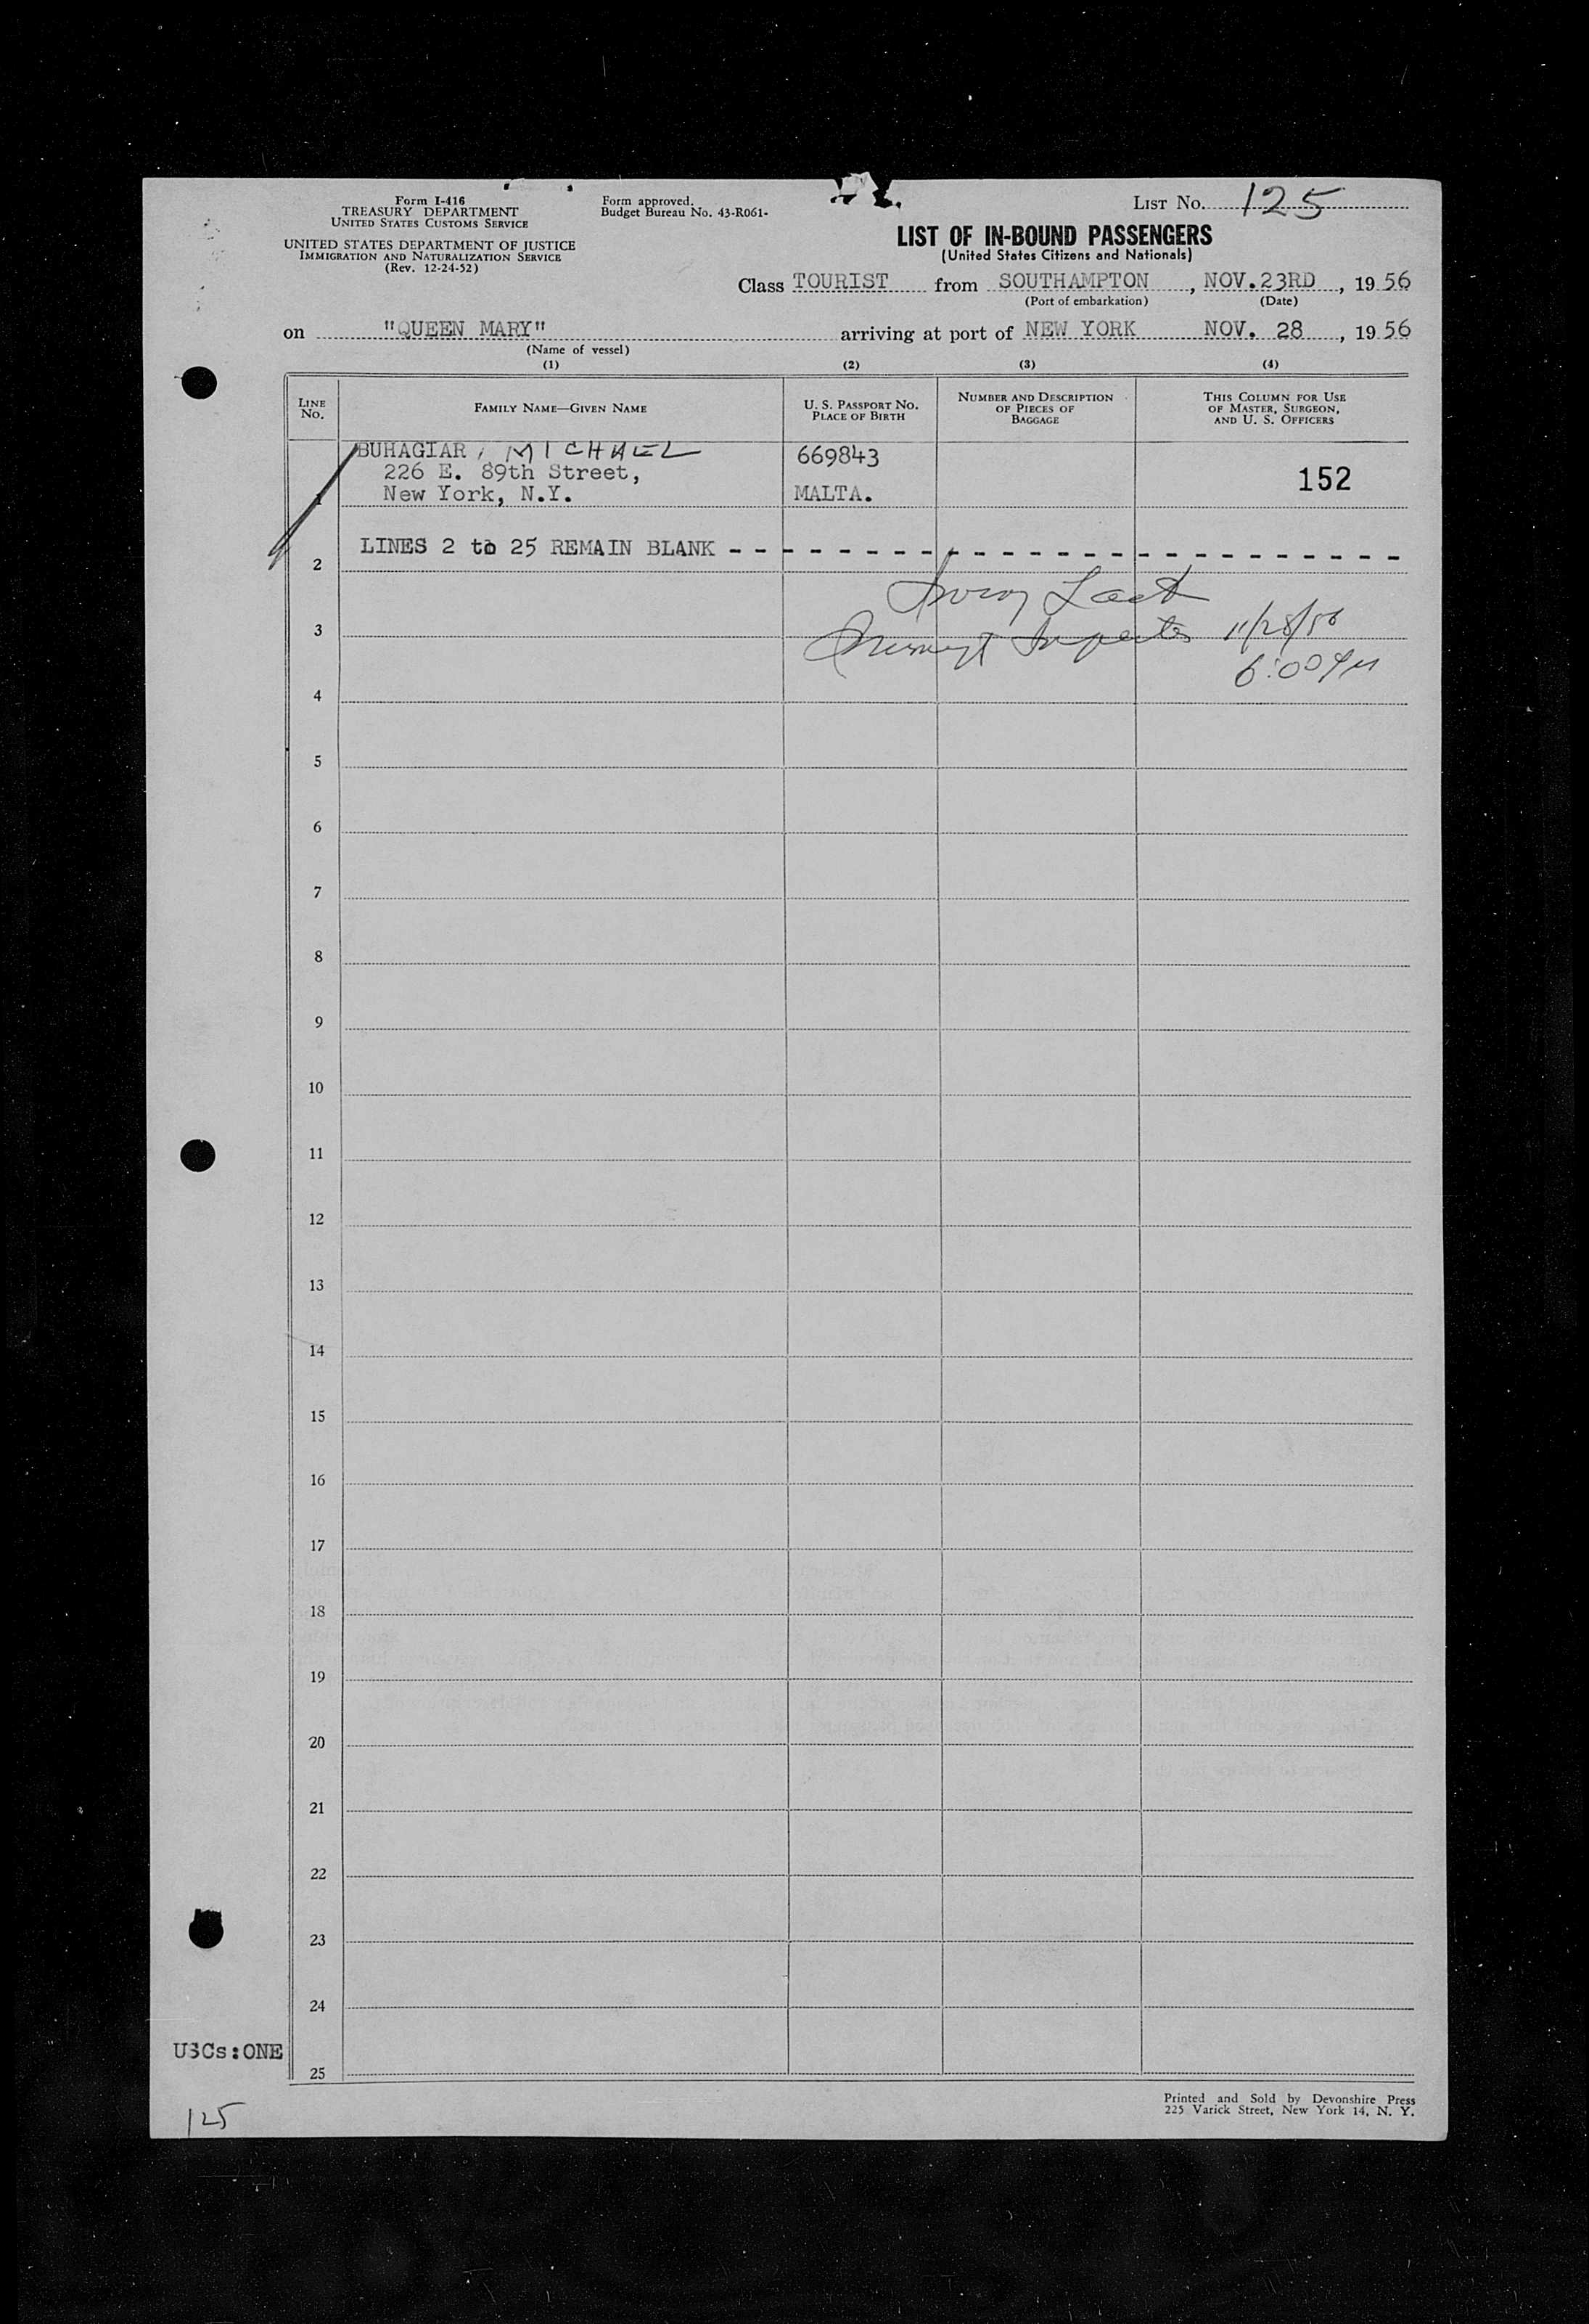 Form I-416
TREASURY DEPARTMENT
UNITED STATES CUSTOMS SERVICE
UNITED STATES DEPARTMENT OF JUSTICE
IMMIGRATION AND NATURALIZATION SERVICE
(Rev. 12-24-52)
Form approved.
Budget Bureau No. 43-R061-
LIST No. 125
LIST OF IN-BOUND PASSENGERS
(United States Citizens and Nationals)
Class TOURIST from SOUTHAMPTON, NOV.23RD, 1956
(Port of embarkation) (Date)
on "QUEEN MARY" arriving at port of NEW YORK NOV. 28, 1956
(Name of vessel)
(1) (2) (3) (4)
LINE No.
FAMILY NAME—GIVEN NAME
U. S. PASSPORT No.
PLACE OF BIRTH
NUMBER AND DESCRIPTION
OF PIECES OF
BAGGAGE
THIS COLUMN FOR USE
OF MASTER, SURGEON,
AND U. S. OFFICERS
1
BUHAGIAR, MICHAEL
226 E. 89th Street,
New York, N.Y.
669843
MALTA.
152
2 LINES 2 to 25 REMAIN BLANK - - - - - - - - - - - - - - - - - - - - - - - - -
3 11/28/56
6:00 PM
4
5
6
7
8
9
10
11
12
13
14
15
16
17
18
19
20
21
22
23
24
USCs:ONE
25
Printed and Sold by Devonshire Press
225 Varick Street, New York 14, N. Y.
125